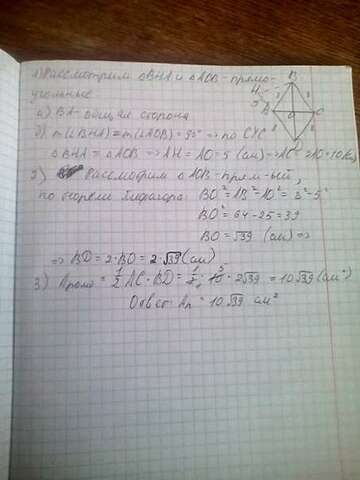 1) Рассмотрим △BHA и △AOB - прямо-
угольные
а) BA - общая сторона
б) m(∠BHA) = m(∠AOB) = 90° => по СУС
△BHA = △AOB => AH = AO = 5 (см) => AC = 2AO = 10 (см)
2) Рассмотрим △AOB - прям-ый,
по теореме Пифагора: BO² = AB² - AO² = 8² - 5²
BO² = 64 - 25 = 39
BO = √39 (см) =>
=> BD = 2·BO = 2√39 (см)
3) Aромб = 1/2 AC · BD = 1/2 · 10 · 2√39 = 10√39 (см²)
Ответ: Aр = 10√39 см²
B
H
A
O
C